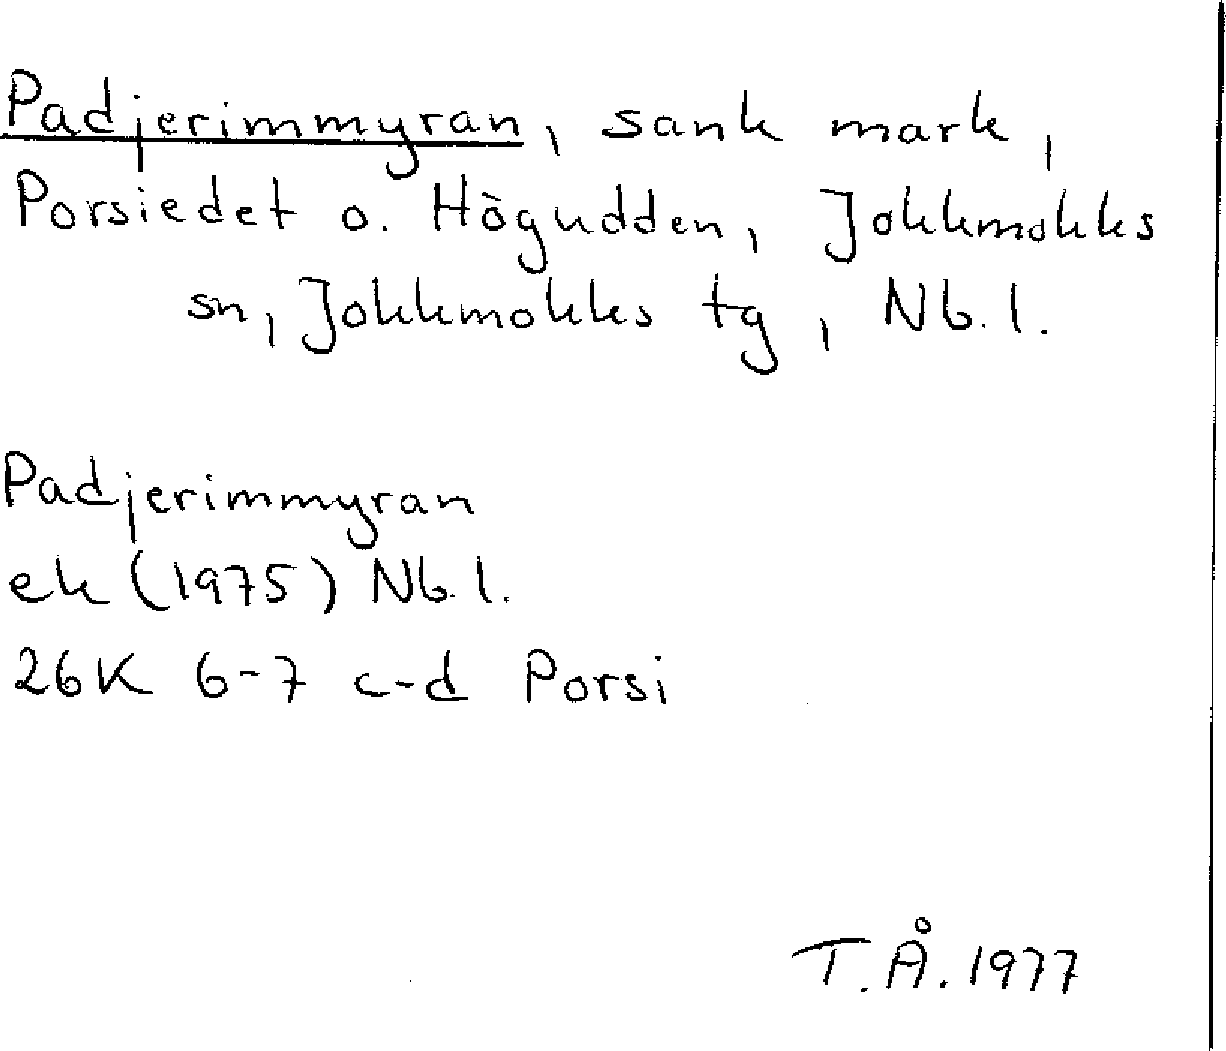 Padjerimmyran, sank mark,
Porsiedet o. Högudden, Jokkmokks
sn, Jokkmokks tg, Nb.l.
Padjerimmyran
ek (1975) Nb.l.
26K 6-7 c-d Porsi
T.Å. 1977